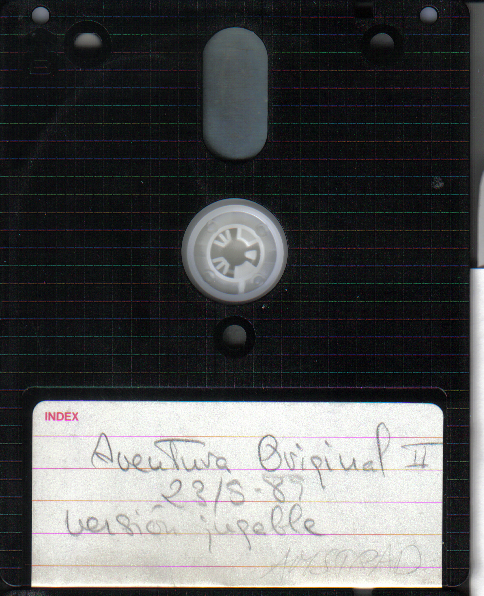 INDEX
Aventura Original II
23/5-89
versión jugable